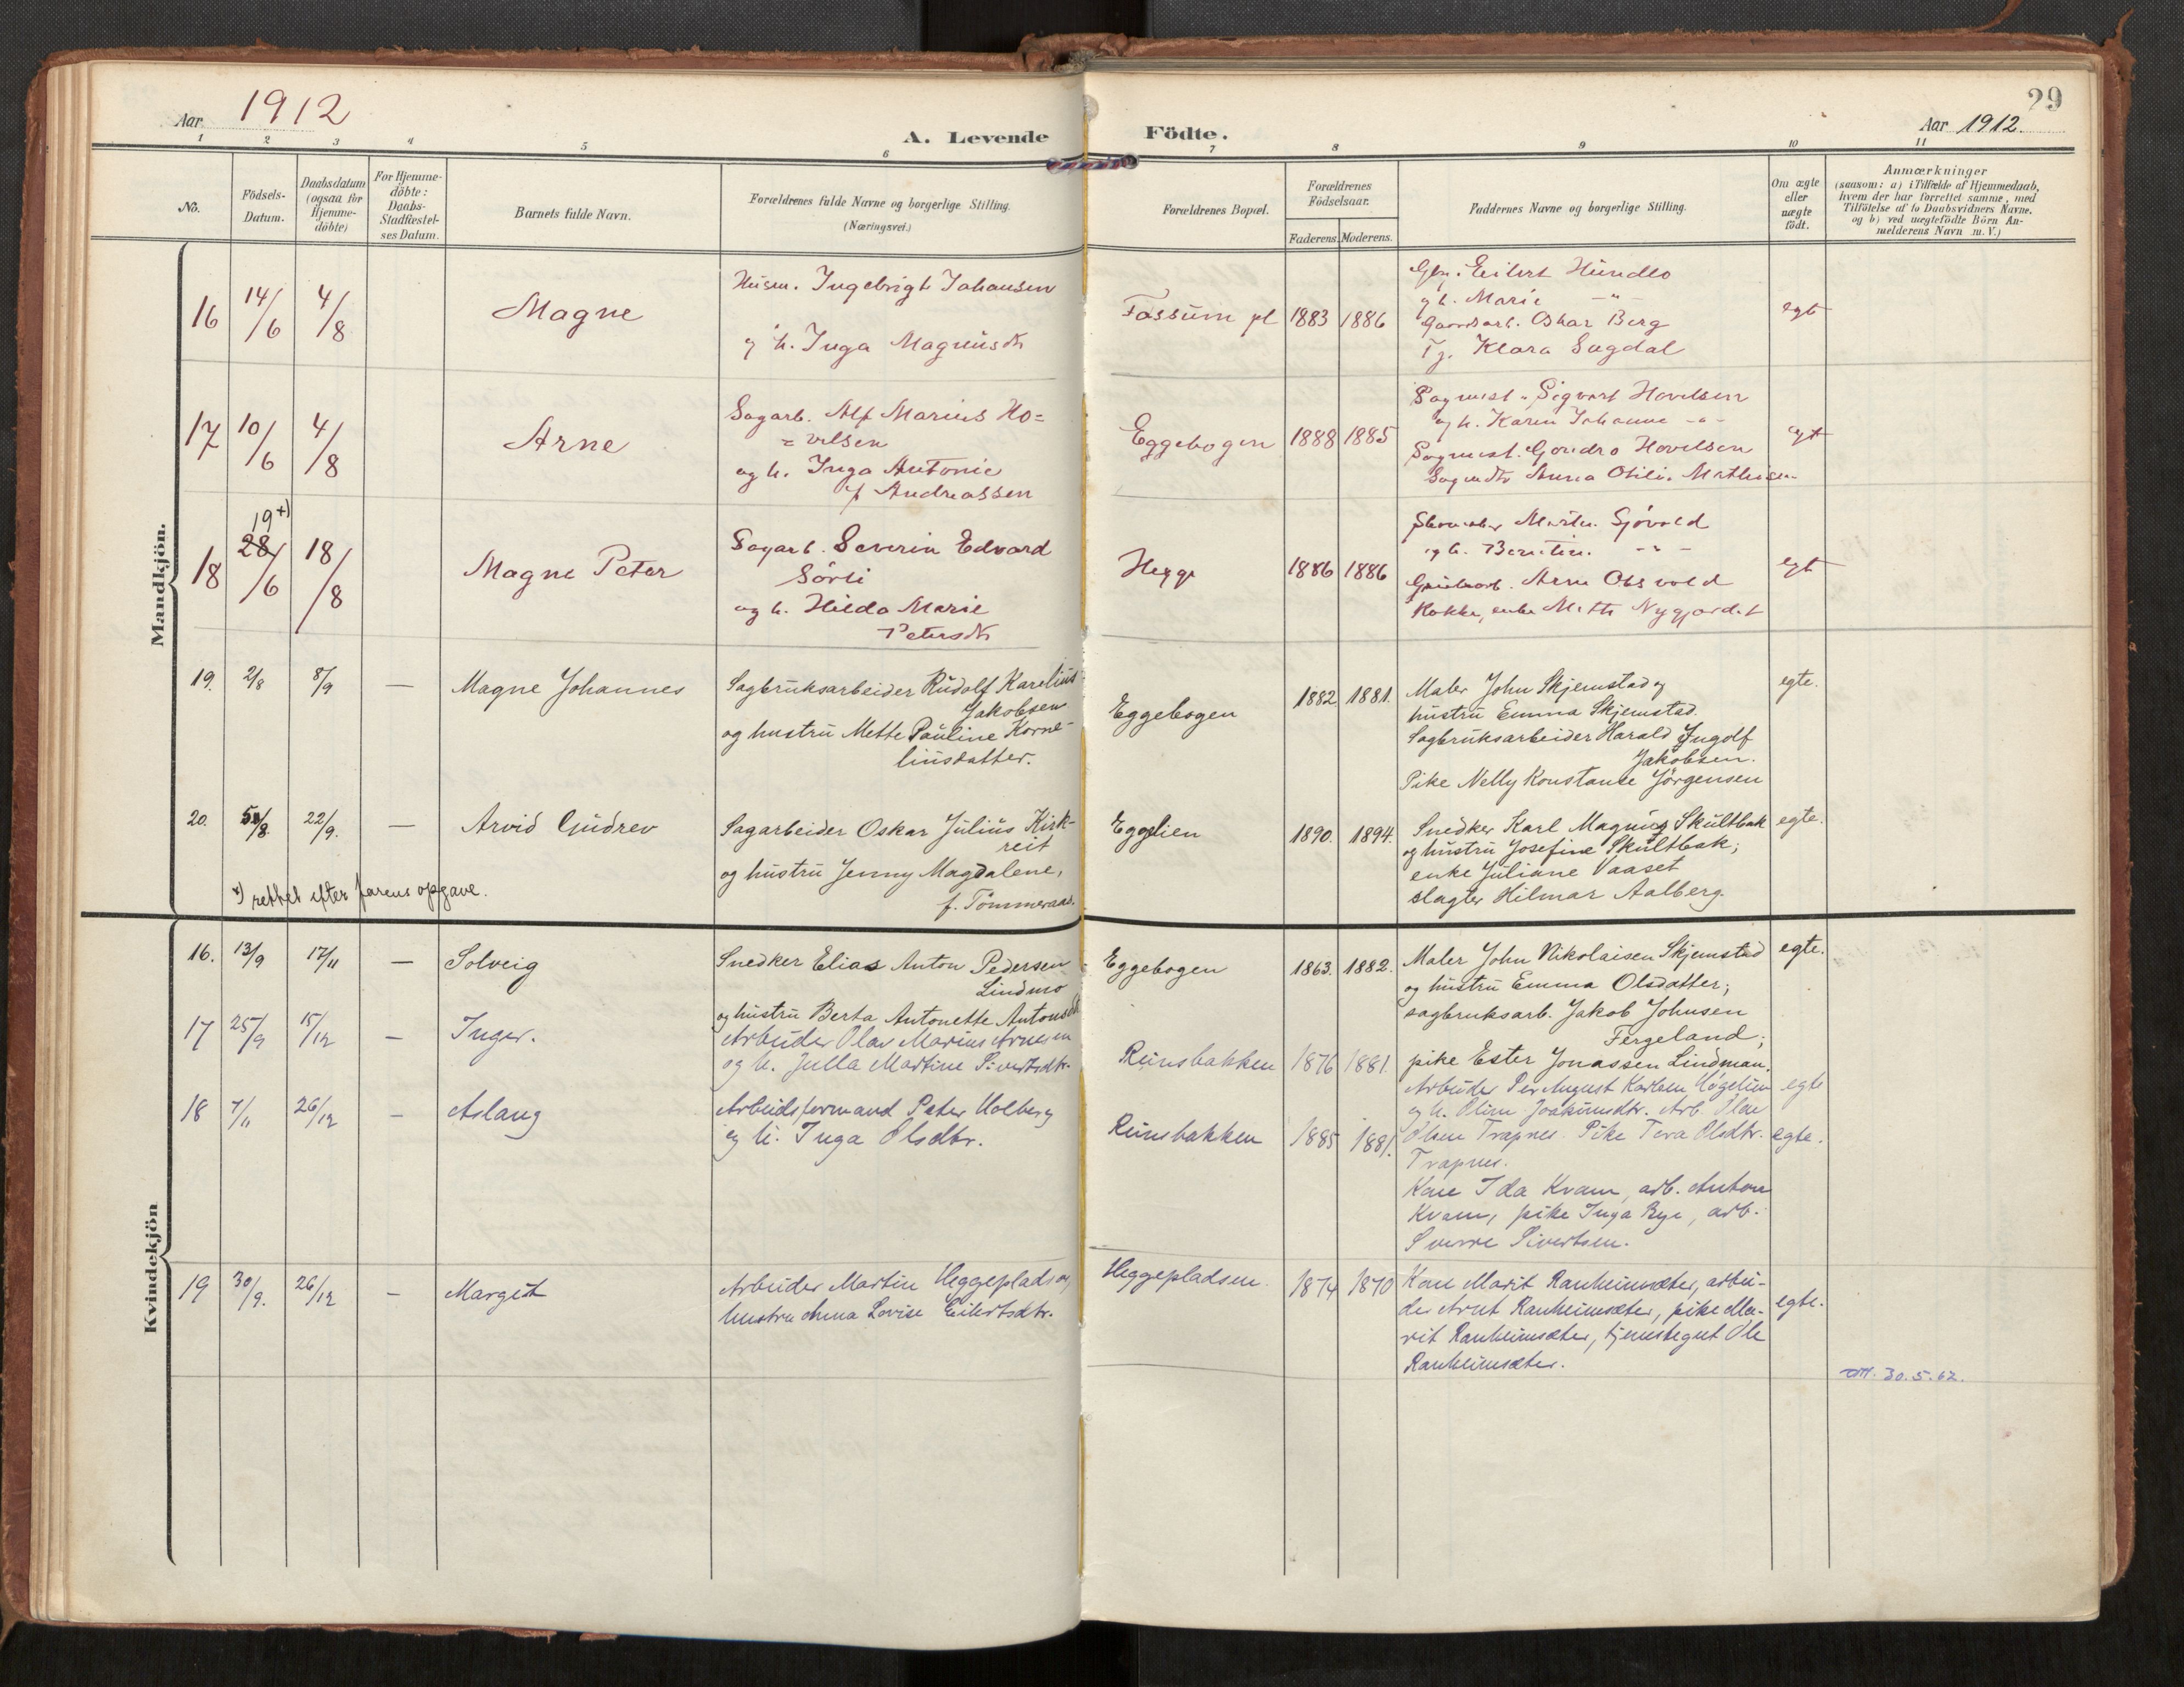 Aar 1912
A. Levende Födte.
29
Aar 1912.
1 2 3 4 5 6 7 8 9 10 11
No.
Födsels-
Datum.
Daabsdatum
(ogsaa for
Hjemme-
döbte)
For Hjemme-
döbte:
Daabs-
Stadfæstel-
ses Datum.
Barnets fulde Navn.
Forældrenes fulde Navne og borgerlige Stilling.
(Næringsvei.)
Forældrenes Bopæl.
Forældrenes
Födselsaar.
Faderens. Moderens.
Faddernes Navne og borgerlige Stilling.
Om ægte
eller
uægte
födt.
Anmærkninger
(saasom: a) i Tilfælde af Hjemmedaab,
hvem der har forrettet samme, med
Tilföielse af to Daabsvidners Navne.
og b) ved uægtefödte Börn An-
melderens Navn m. V.)
Mandkjön.
16 14/6 4/8 Magne
Husm. Ingebrigt Johansen
og h. Inga Magnusdtr
Fossum pl 1883 1886
Gbr. Eilert Hundlo
og h. Marie -"-
Gaardsarb. Oskar Berg
Tj. Klara Sugdal
egt
17 10/6 4/8 Arne
Sagarb. Alf Marius Ho=
=velsen
og h. Inga Antonie
f Andreassen
Eggebogen 1888 1885
Sagmest. Sigvart Hovelsen
og h. Karen Johanne -"-
Sagmest. Hovelsen
Anna Otili. Mathisen
egt
18 19+) 28/6 18/8 Magne Peter
Sagarb. Severin Edvard
Sörli
og h. Hilda Marie
Petersdtr
Hegge 1886 1886
Martin Sjövold
og h. Berntin. -"-
Arne Oksvold
Kokke, enke Mette Nygjordet
egt
19. 2/8 8/9 — Magne Johannes
Sagbruksarbeider Rudolf Karelius
Jakobsen
og hustru Mette Pauline Korne-
liusdatter.
Eggebogen 1882 1881.
Maler John Skjemstad og
hustru Emma Skjemstad.
Sagbruksarbeider Harald Ingolf
Jakobsen.
Pike Nelly Konstanse Jörgensen
egte.
20. 5/8 22/9. — Arvid Gudrev
Sagarbeider Oskar Julius Kirk-
reit
og hustru Jenny Magdalene,
f. Tömmeraas.
Eggelien 1890. 1894.
Snedker Karl Magnus Skultbak
og hustru Josefine Skultbak;
enke Juliane Vaaset
slagter Hilmar Aalberg.
egte.
+) rettet efter farens opgave.
Kvindekjön
16. 13/9 17/11 — Solveig
Snedker Elias Anton Pedersen
Lindmo
og hustru Berta Antonette Antonsdtr
Eggebogen 1863. 1882.
Maler John Nikolaisen Skjemstad
og hustru Emma Olsdatter;
sagbruksarb. Jakob Johnsen
Fergeland;
pike Ester Jonassen Lindman.
egte.
17 25/9 15/12 — Inger.
Arbeider Olav Marius Arnesen
og h. Julla Martine Sivertsdtr.
Runsbakken 1876 1881.
Arbeider Per August Karlsen Høgelien
og h. Oline Joakimsdtr. Arb. Olav
Olsen Trapnes. Pike Tora Olsdtr.
Trapnes.
egte
18 7/11 26/12 — Aslaug
Arbeidsformand Peter Holberg
og h. Inga Olsdtr.
Runsbakken 1885 1881.
Kone Ida Kvam, arb. Anton
Kvam, pike Inga Rye, arb.
Sverre Sivertsen.
egte.
19 30/9. 26/12 — Margit
Arbeider Martin Heggeplads og
hustru Anna Lovise Eilertsdtr.
Heggepladsen. 1874 1870
Kone Marit Ranheimsæter, arbei-
der Arnt Ranheimsæter, pike Ma-
rit Ranheimsæter, tjenestegut Ole
Ranheimsæter.
egte.
30.5.62.